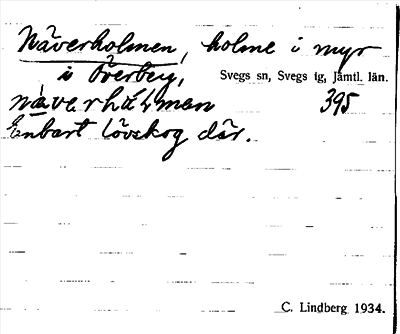 Näverholmen, holme i myr
i Överberg, Svegs sn, Svegs tg, Jämtl. län.
395
Enbart lövskog där.
C. Lindberg 1934.